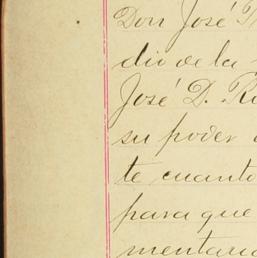 Don José
dio de la
José D.
su poder
te cuanto
para que
mentaria